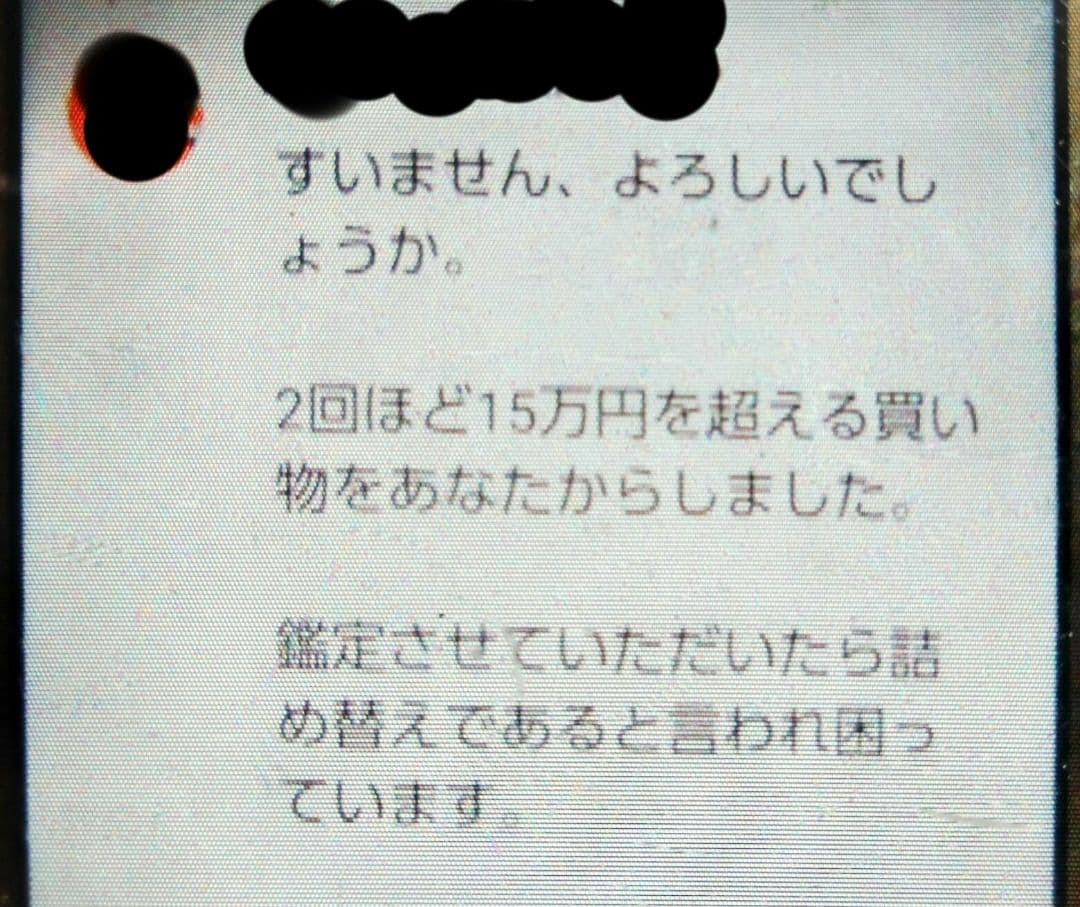 すいません、よろしいでし
ょうか。
2回ほど15万円を超える買い
物をあなたからしました。
鑑定させていただいたら詰
め替えであると言われ困っ
ています。